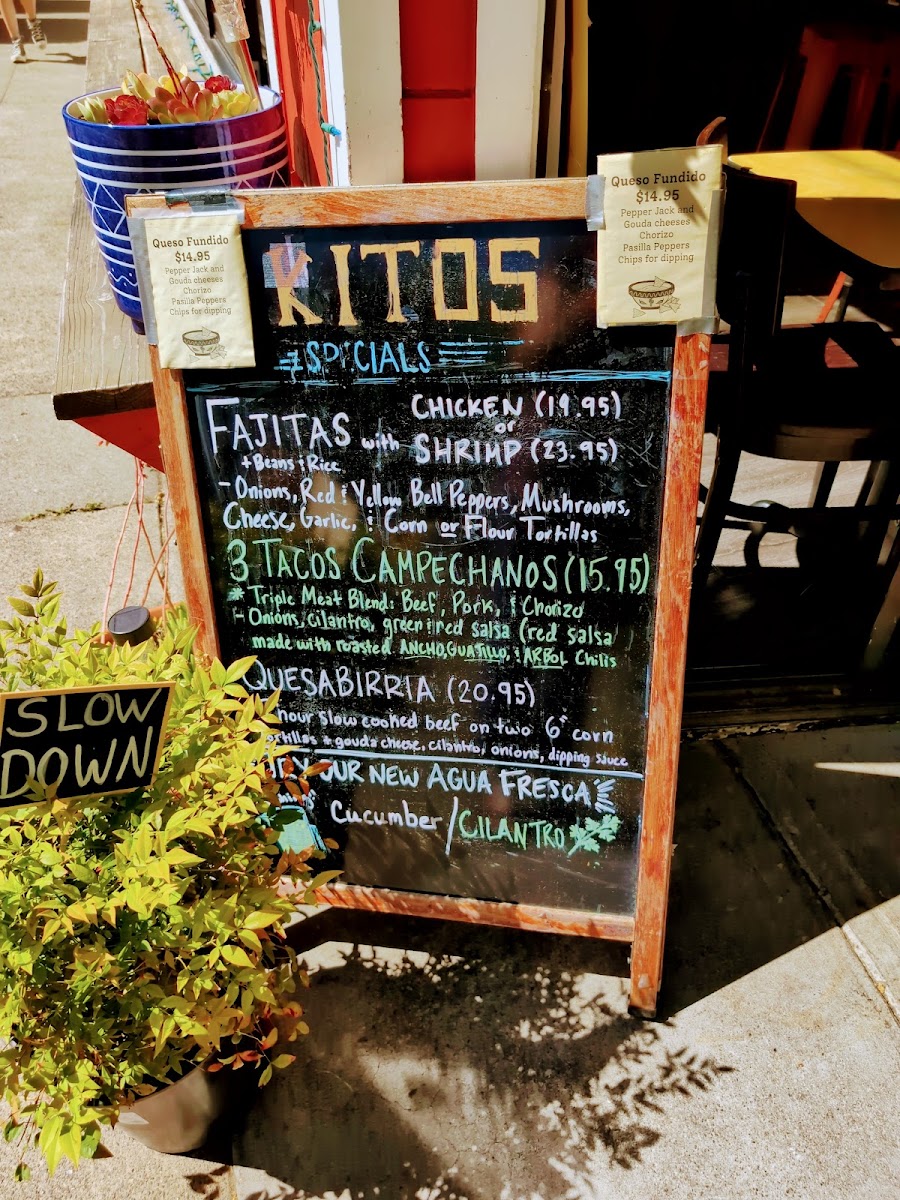 Queso Fundido
$14.95
Pepper Jack and
Gouda cheeses
Chorizo
Pasilla Peppers
Chips for dipping
Queso Fundido
$14.95
Pepper Jack and
Gouda cheeses
Chorizo
Pasilla Peppers
Chips for dipping
KITOS
SPECIALS
FAJITAS with CHICKEN (19.95)
or
SHRIMP (23.95)
+ Beans & Rice
- Onions, Red & Yellow Bell Peppers, Mushrooms,
Cheese, Garlic, & Corn or Flour Tortillas
3 TACOS CAMPECHANOS (15.95)
* Triple Meat Blend: Beef, Pork, & Chorizo
- Onions, cilantro, green & red salsa (red salsa
made with roasted ANCHO, GUAJILLO, & ARBOL Chilis
QUESABIRRIA (20.95)
hour slow cooked beef on two 6" corn
tortillas + gouda cheese, cilantro, onions, dipping sauce
OUR NEW AGUA FRESCA
Cucumber/CILANTRO
SLOW
DOWN